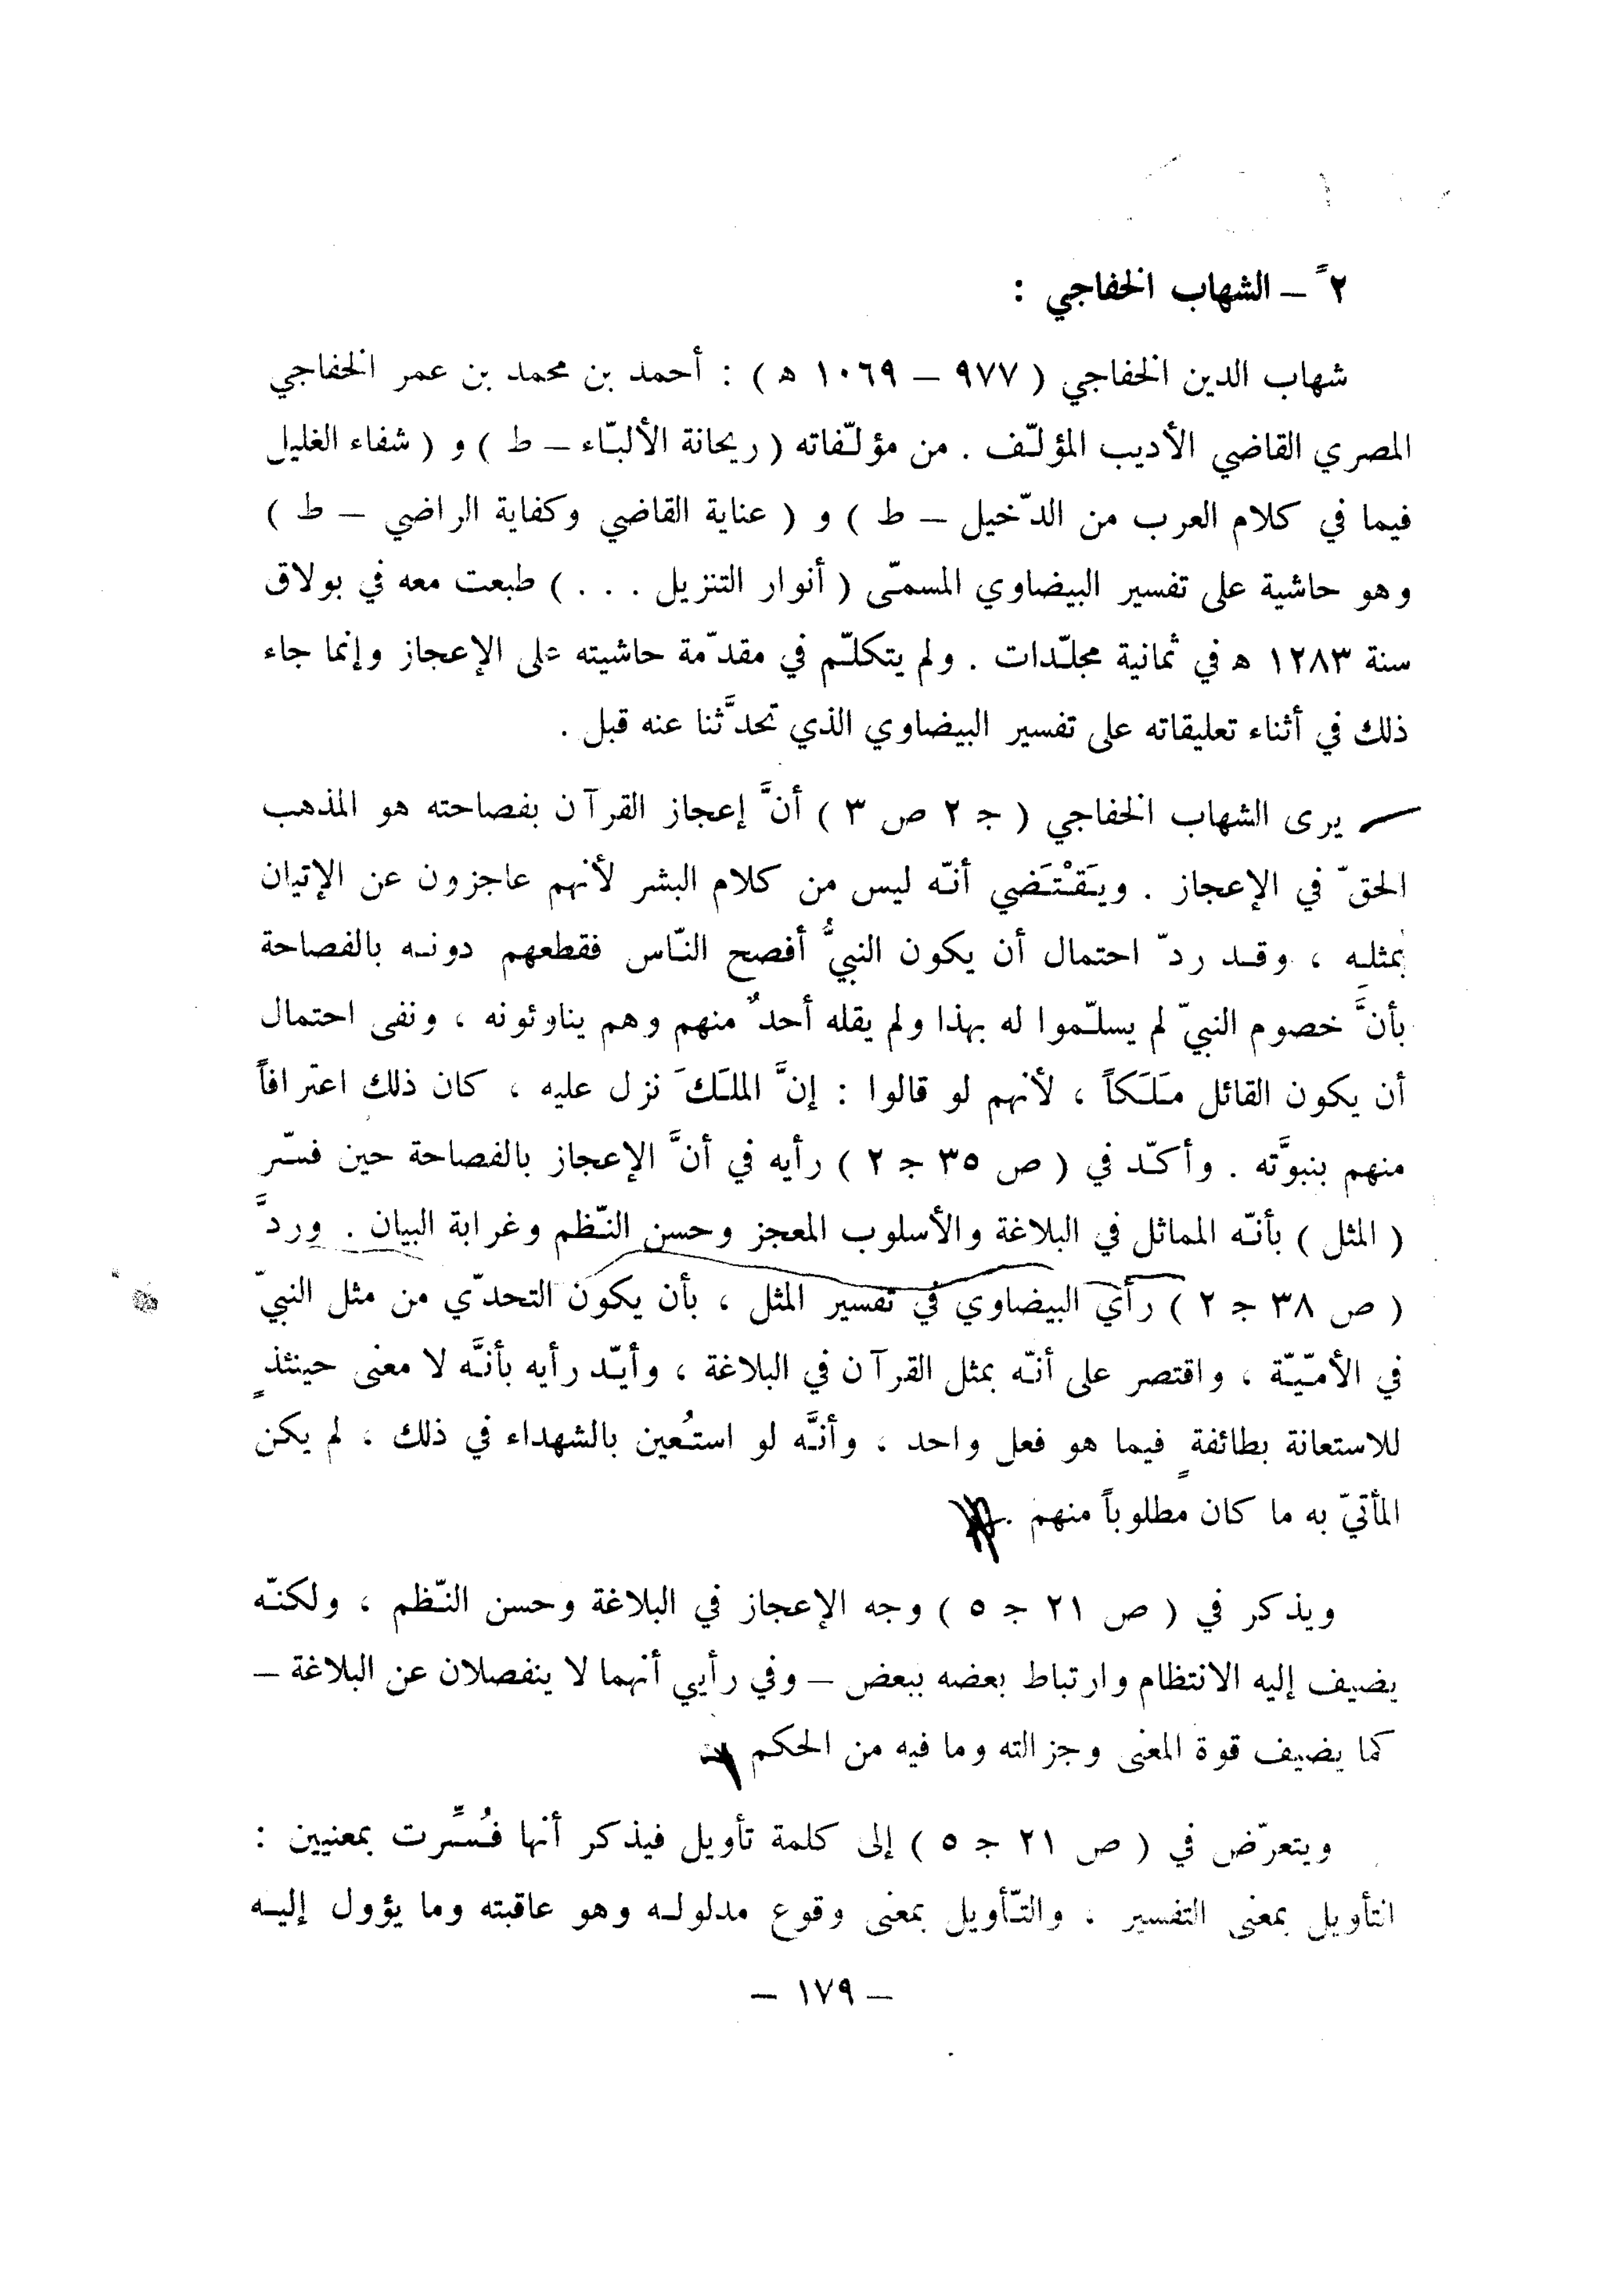 ٢ً — الشهاب الخفاجي :
شهاب الدين الخفاجي ( ٩٧٧ — ١٠٦٩ ه ) : أحمد بن محمد بن عمر الخفاجي
المصري القاضي الأديب المؤلّف . من مؤلّفاته ( ريحانة الألبّاء — ط ) و ( شفاء الغليل
فيما في كلام العرب من الدّخيل — ط ) و ( عناية القاضي وكفاية الراضي — ط )
وهو حاشية على تفسير البيضاوي المسمّى ( أنوار التنزيل . . . ) طبعت معه في بولاق
سنة ١٢٨٣ ه في ثمانية مجلّدات . ولم يتكلّم في مقدّمة حاشيته على الإعجاز وإنما جاء
ذلك في أثناء تعليقاته على تفسير البيضاوي الذي تحدَّثنا عنه قبل .
يرى الشهاب الخفاجي ( ج ٢ ص ٣ ) أنَّ إعجاز القرآن بفصاحته هو المذهب
الحقّ في الإعجاز . ويَقْتَضي أنّه ليس من كلام البشر لأنهم عاجزون عن الإتيان
بمثله ، وقد ردّ احتمال أن يكون النبيُّ أفصح النّاس فقطعهم دونه بالفصاحة
بأنَّ خصوم النبيّ لم يسلّموا له بهذا ولم يقله أحدٌ منهم وهم يناوئونه ، ونفى احتمال
أن يكون القائل مَلَكاً ، لأنهم لو قالوا : إنَّ الملَكَ نزل عليه ، كان ذلك اعترافاً
منهم بنبوَّته . وأكّد في ( ص ٣٥ ج ٢ ) رأيه في أنَّ الإعجاز بالفصاحة حين فسّر
( المثل ) بأنّه المماثل في البلاغة والأسلوب المعجز وحسن النّظم وغرابة البيان . وردَّ
( ص ٣٨ ج ٢ ) رأي البيضاوي في تفسير المثل ، بأن يكون التحدّي من مثل النبيّ
في الأمّيّة ، واقتصر على أنّه بمثل القرآن في البلاغة ، وأيّد رأيه بأنَّه لا معنى حينئذٍ
للاستعانة بطائفةٍ فيما هو فعل واحد ، وأنَّه لو استُعين بالشهداء في ذلك ، لم يكن
المأتيّ به ما كان مطلوباً منهم .
ويذكر في ( ص ٢١ ج ٥ ) وجه الإعجاز في البلاغة وحسن النّظم ، ولكنّه
يضيف إليه الانتظام وارتباط بعضه ببعض — وفي رأيي أنهما لا ينفصلان عن البلاغة —
كما يضيف قوة المعنى وجزالته وما فيه من الحكم
ويتعرّض في ( ص ٢١ ج ٥ ) إلى كلمة تأويل فيذكر أنها فُسِّرت بمعنيين :
التأويل بمعنى التفسير ، والتّأويل بمعنى وقوع مدلوله وهو عاقبته وما يؤول إليه
— ١٧٩ —